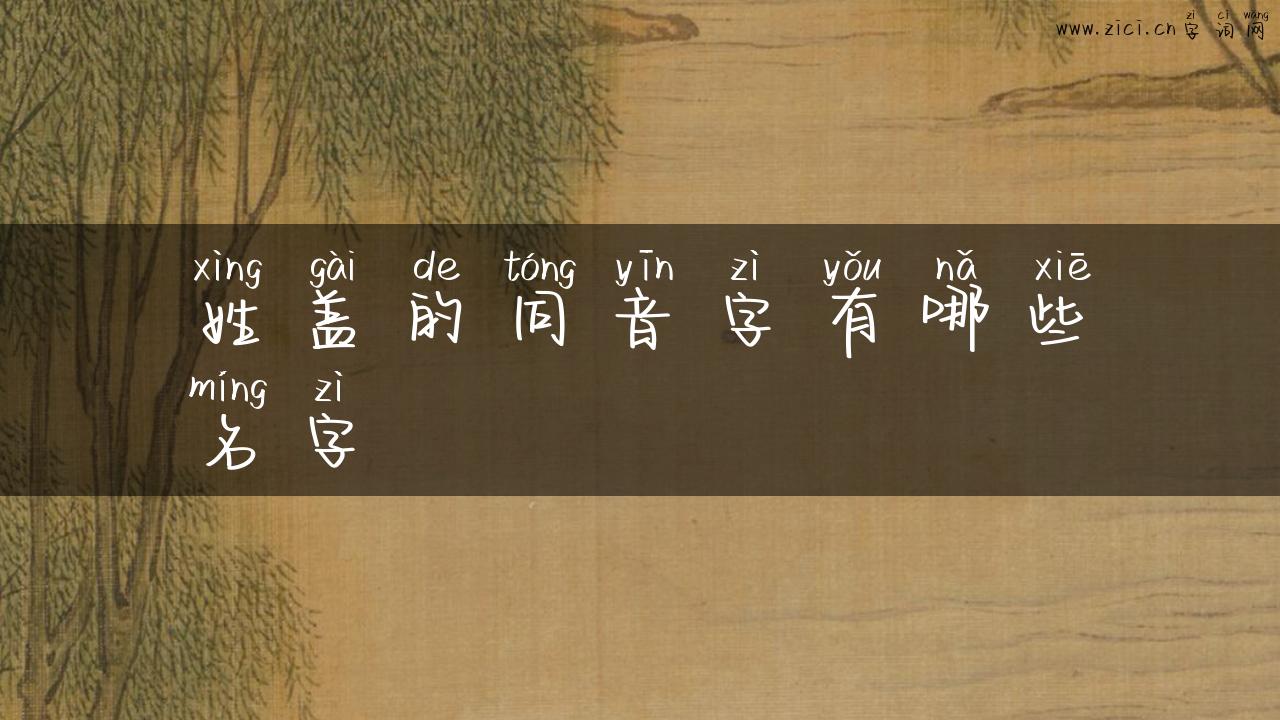 zì cí wǎng
www.zici.cn 字词网
xìng gài de tóng yīn zì yǒu nǎ xiē
姓盖的同音字有哪些
míng zì
名字